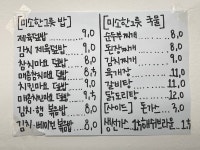 [미소한그릇 밥]
제육덮밥 9,0
김치 제육덮밥 9,0
참치마요 덮밥 8,0
매콤참치마요 덮밥 8,5
치킨마요 덮밥 9,0
매콤치킨마요 덮밥 9,5
김치·햄 볶음밥 8,0
김치·베이컨 볶음밥 8,0
[미소한그릇 국물]
순두부찌개 8,0
된장찌개 8,0
김치찌개 9,0
육개장 11,0
갈비탕 11,0
닭도리탕 12,0
[사이드] 돈가스 3,0